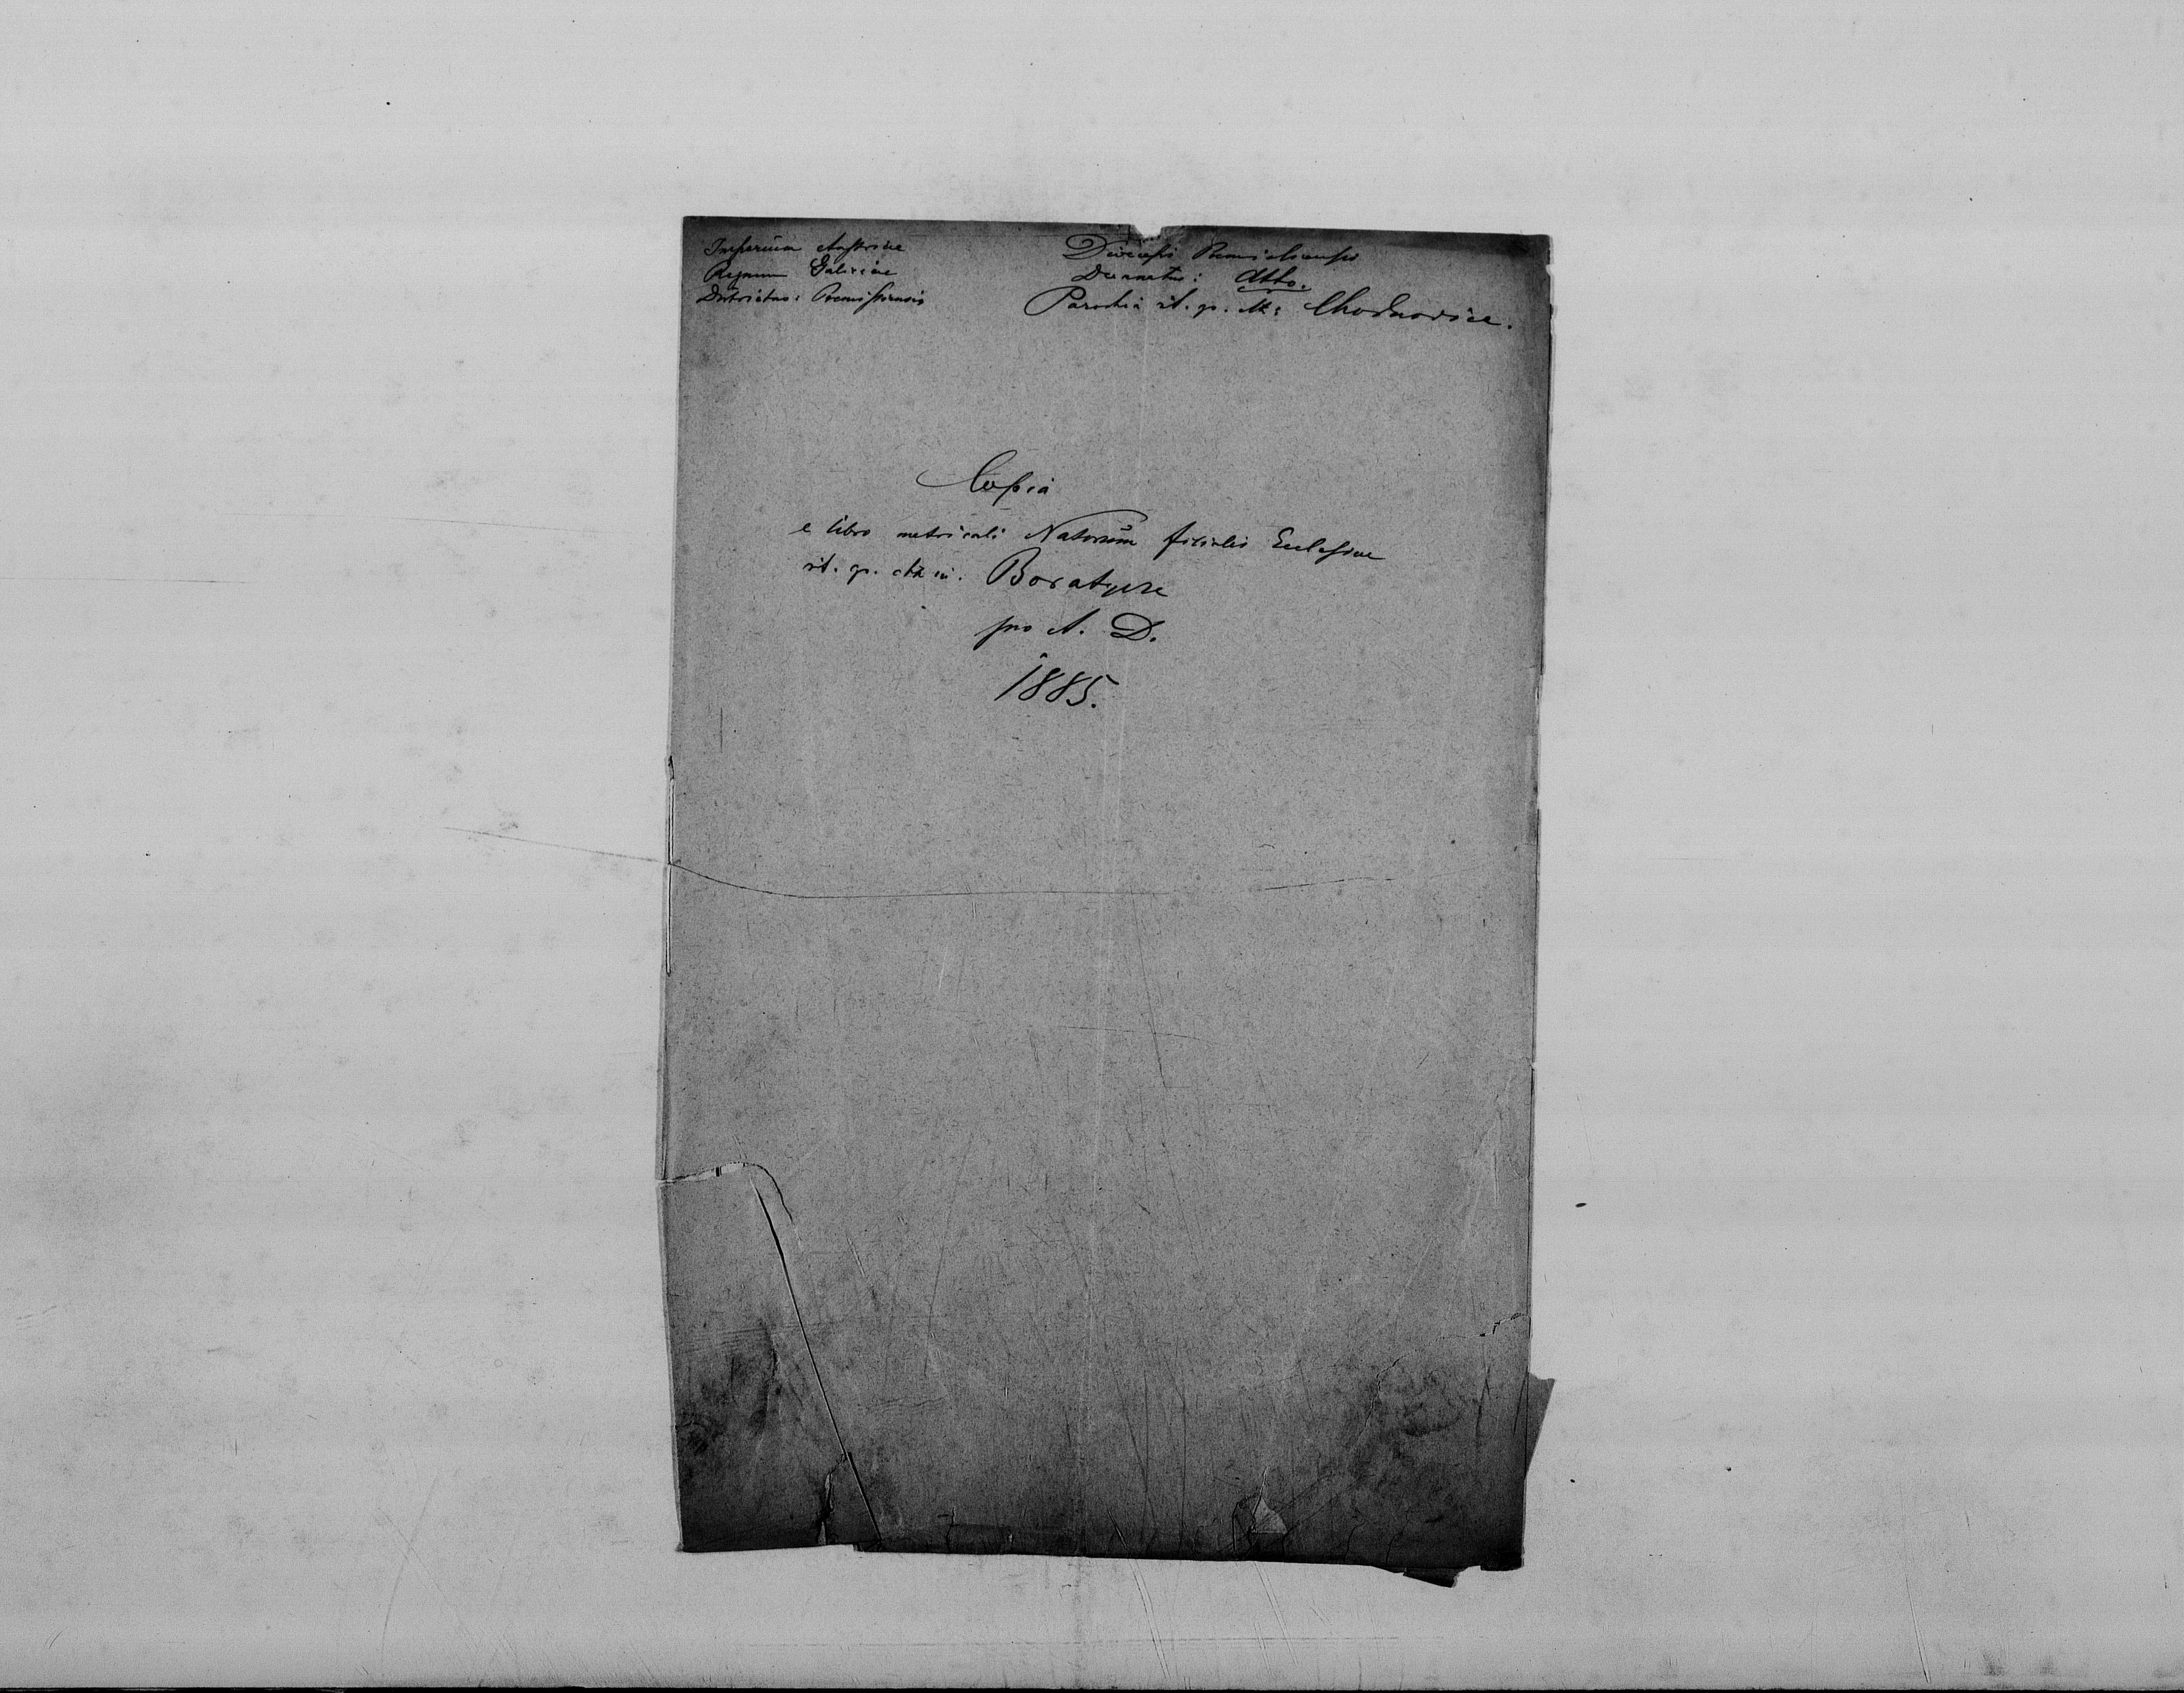 Imperium Austriae
Regnum Galiciae
Districtus: Premisliensis
Dioecesis Premisliensis
Decanatus: dtto.
Parochia rit. gr. cth: Chodnovice.
Copia
e libro metricali Natorum filialis Ecclesiae
rit. gr. cth in. Boratycze
pro A. D.
1885.